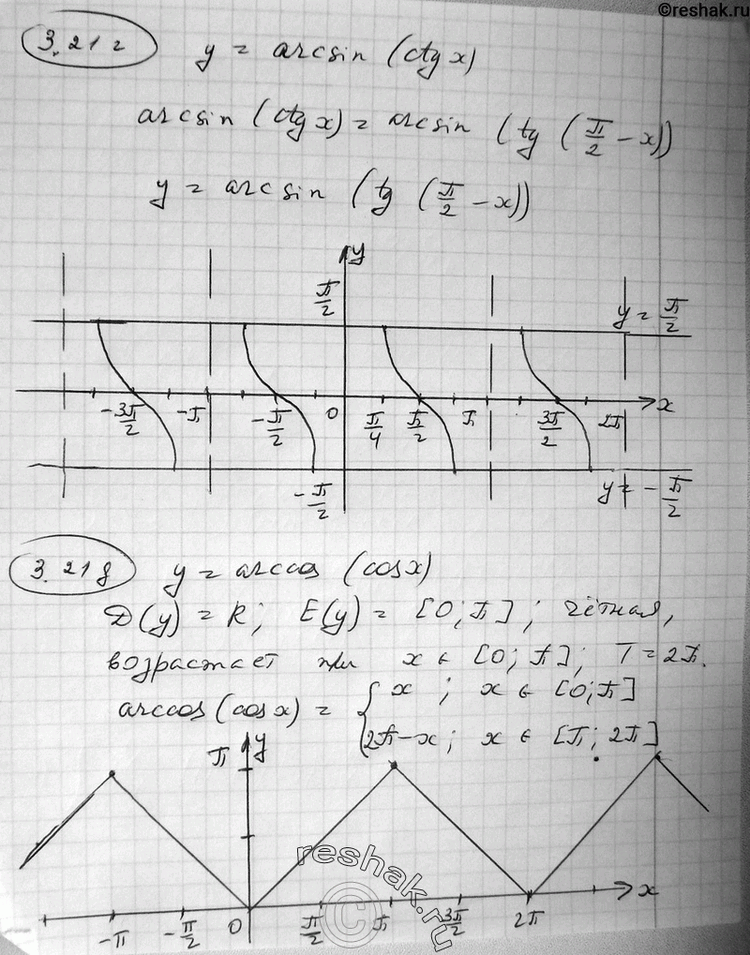 ©reshak.ru
3.21г y = arcsin (ctg x)
arcsin (ctg x) = arcsin (tg (π/2 - x))
y = arcsin (tg (π/2 - x))
y
π/2 y = π/2
-3π/2 -π -π/2 0 π/4 π/2 π 3π/2 2π x
-π/2 y = -π/2
3.21д y = arccos (cos x)
D(y) = R; E(y) = [0; π]; чётная,
возрастает при x ∈ [0; π]; T = 2π.
arccos (cos x) = { x ; x ∈ [0; π]
2π-x; x ∈ [π; 2π]
π y
reshak.ru
©
-π -π/2 0 π/2 π 3π/2 2π x